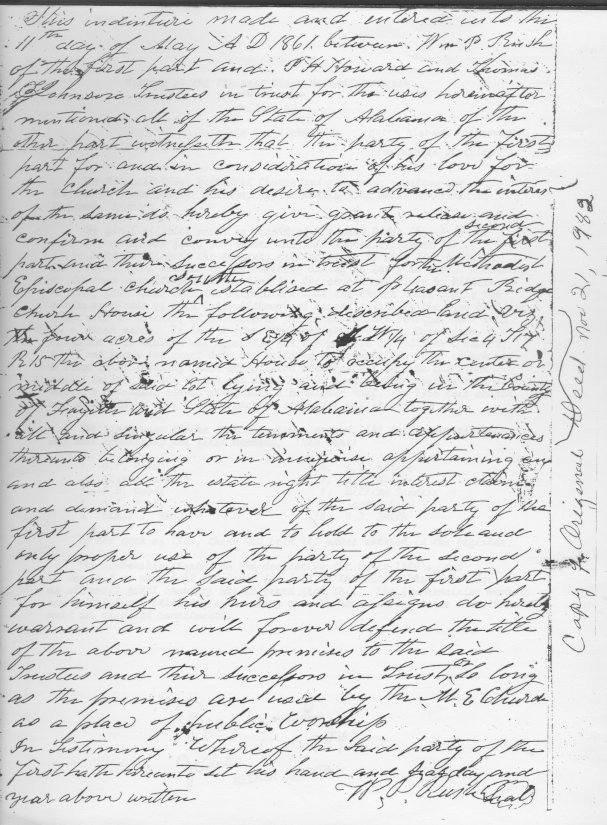 This indenture made and entered into the
11th day of May A D 1861 between Wm P. Rush
of the first part and P H Howard and Thomas
Johnson Trustees in trust for the uses hereinafter
mentioned all of the State of Alabama of the
other part witnesseth that the party of the first
part for and in consideration of his love for
the church and his desire to advance the interes
of the same do hereby give grant release and
confirm and convey unto the party of the second
part and their successors in trust for the Methodist
Episcopal church South established at Pleasant Ridge
Church House the following described land viz
four acres of the of W 1/4 of Sec 4
R 15 the above named House to occupy the center or
middle of said lot lying and being in the County
of Fayette and State of Alabama together with
all and singular the tenements and appertenances
thereunto belonging or in anywise appertaining
and also all the estate right title interest claim
and demand whatever of the said party of the
first part to have and to hold to the sole and
only proper use of the party of the second
part and the said party of the first part
for himself his heirs and assigns do hereby
warrant and will forever defend the title
of the above named premises to the said
Trustees and their successors in Trust so long
as the premises are used by the M. E Church
as a place of public Worship
In Testimony Whereof the Said party of the
first hath hereunto set his hand and seal day and
year above written W. P. Rush Seal
Copy of Original Deed. Nov 21, 1982